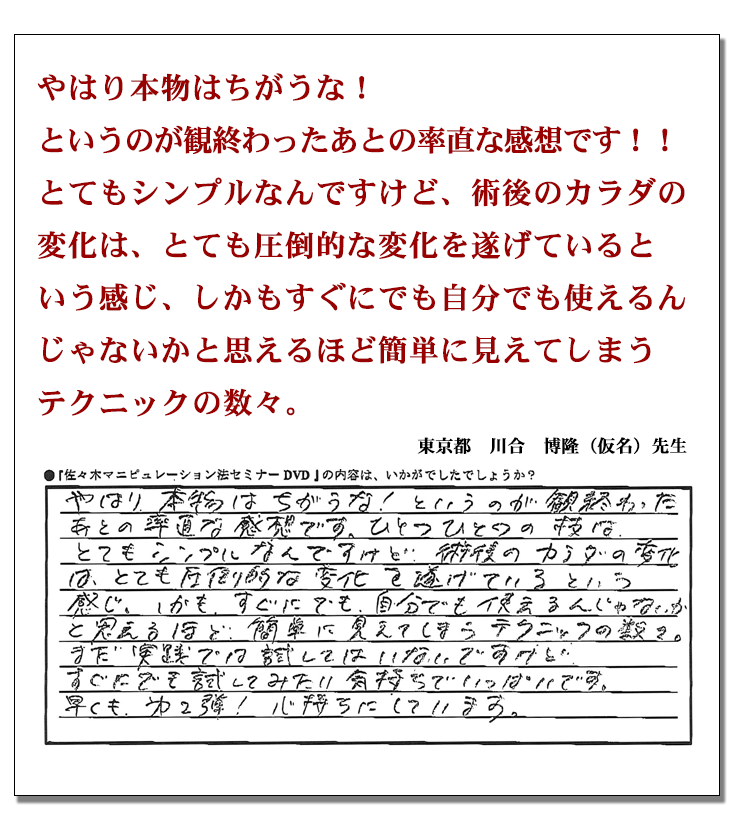 やはり本物はちがうな！
というのが観終わったあとの率直な感想です！！
とてもシンプルなんですけど、術後のカラダの
変化は、とても圧倒的な変化を遂げていると
いう感じ、しかもすぐにでも自分でも使えるん
じゃないかと思えるほど簡単に見えてしまう
テクニックの数々。
東京都　川合　博隆（仮名）先生
●『佐々木マニピュレーション法セミナーDVD』の内容は、いかがでしたでしょうか？
やはり本物はちがうな！というのが観終わった
あとの率直な感想です。ひとつひとつの技は、
とてもシンプルなんですけど、術後のカラダの変化
は、とても圧倒的な変化を遂げているという
感じ、しかも、すぐにでも、自分でも使えるんじゃないか
と思えるほど、簡単に見えてしまうテクニックの数々。
まだ実践では試してはいないですけど
すぐにでも試してみたい気持ちでいっぱいです。
早くも、第2弾！心待ちにしています。